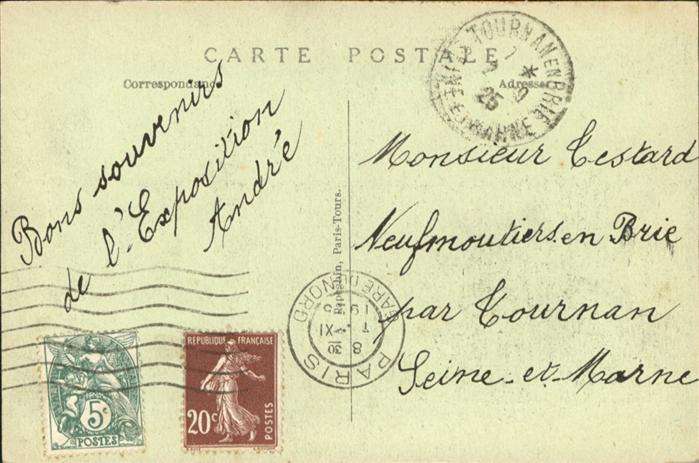 CARTE POSTALE
Correspondance
Adresse
Bons souvenirs
de l'Exposition
André
Monsieur Testard
Neufmoutiers en Brie
par Tournan
Seine-et-Marne
Paris-Tours.
TOURNAN EN BRIE
SEINE-ET-MARNE
25
PARIS
GARE DU NORD
XI
5c
POSTES
REPUBLIQUE FRANÇAISE
20c
POSTES